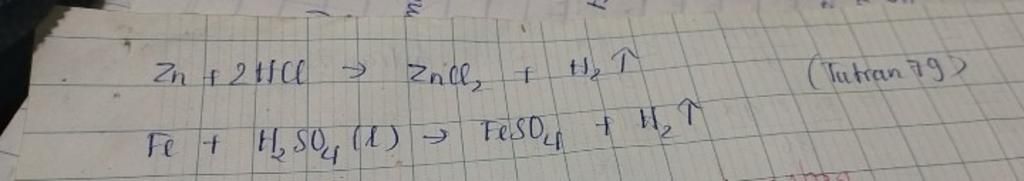 Zn + 2HCl → ZnCl₂ + H₂↑ (Tutran79)
Fe + H₂SO₄ (l) → FeSO₄ + H₂↑